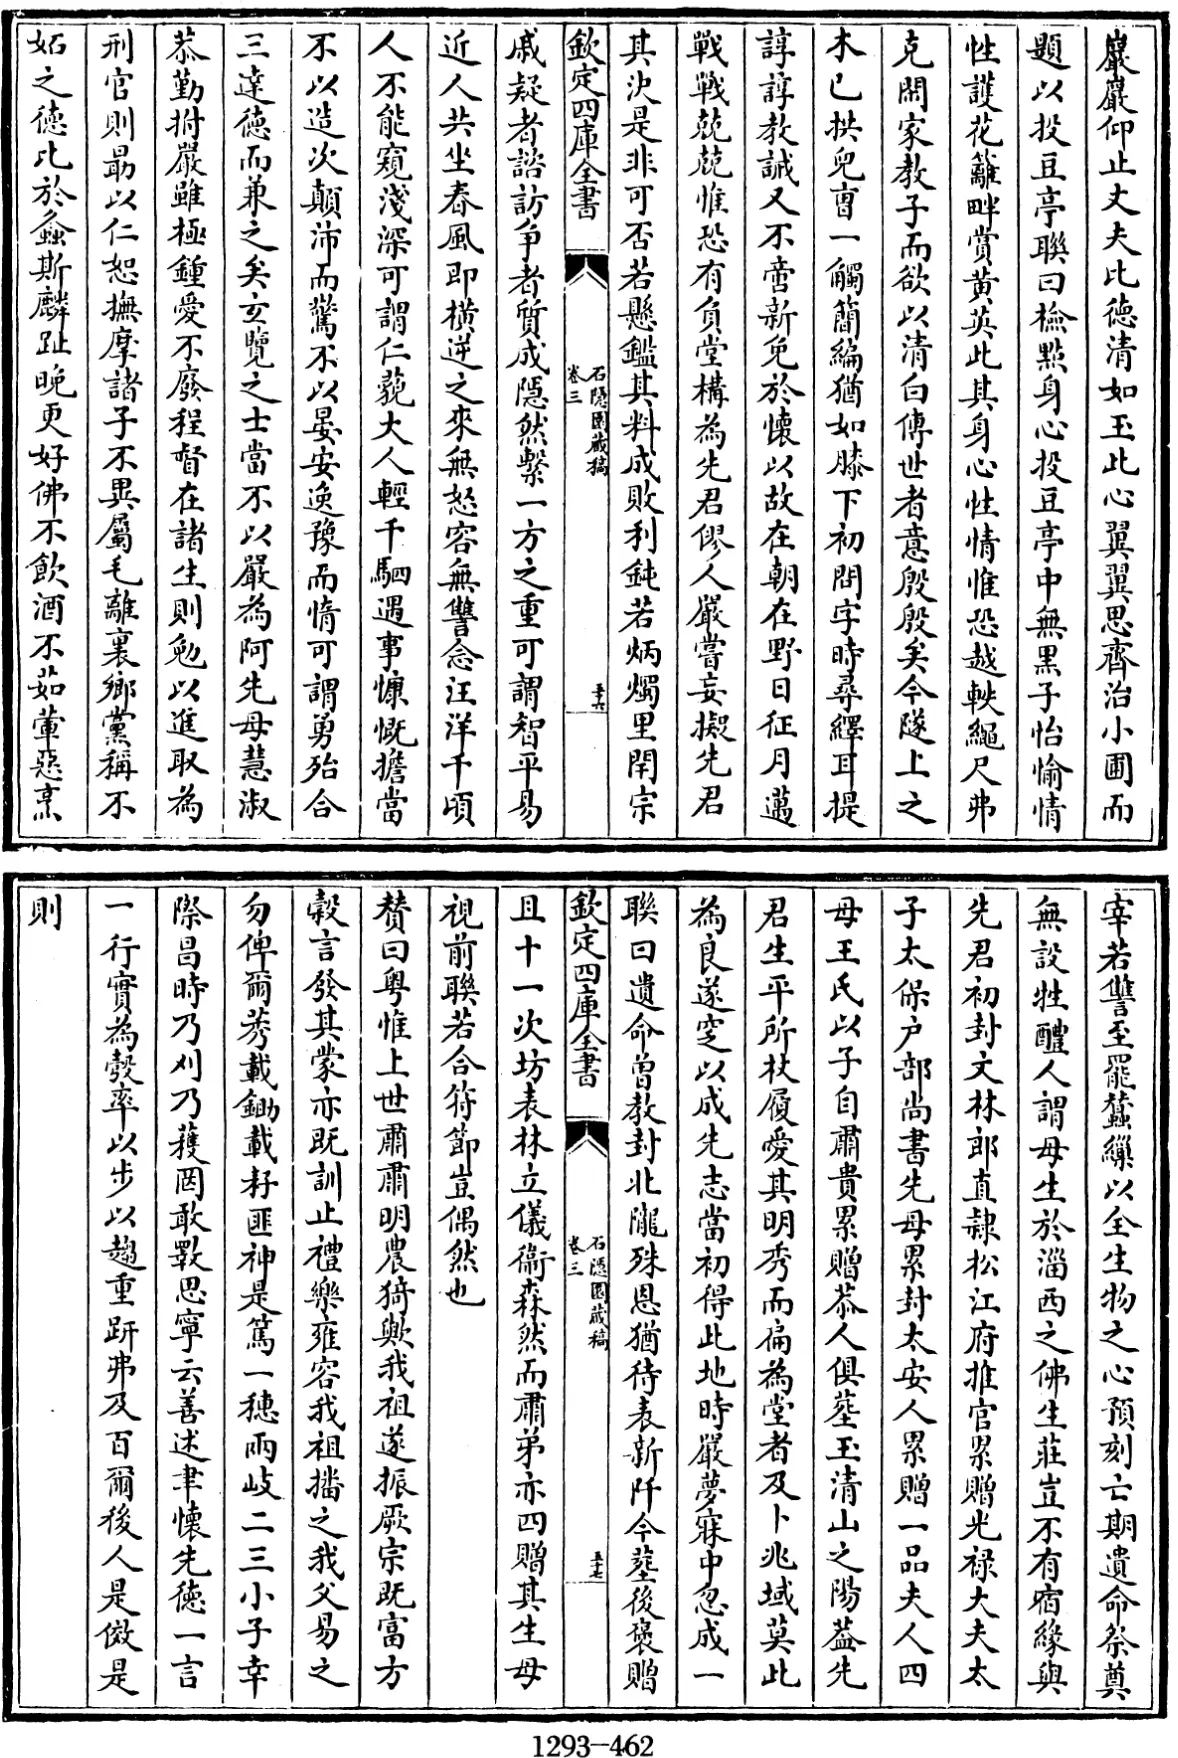 巖巖仰止丈夫比德清如玉此心翼翼思齊治小圃而
題以投豆亭聯曰檢㸃身心投豆亭中無黒子怡愉情
性護花籬畔賞黄英此其身心性情惟恐越軼繩尺弗
克開家教子而欲以清白傳世者意殷殷矣今隧上之
木已拱兒曺一觸簡編猶如膝下初問字時尋繹耳提
諄諄教誡又不啻新免於懷以故在朝在野日征月邁
戰戰兢兢惟恐有負堂構為先君僇人嚴嘗妄擬先君
其決是非可否若懸鑑其料成敗利鈍若炳燭里閈宗
欽定四庫全書
石隱園藏稿
卷三
五十六
戚疑者諮訪爭者質成隱然繫一方之重可謂智平易
近人共坐春風即横逆之來無怒容無讐念汪洋千頃
人不能窺淺深可謂仁藐大人輕千駟遇事慷慨擔當
不以造次顛沛而驚不以晏安逸豫而惰可謂勇殆合
三達徳而兼之矣玄覽之士當不以嚴為阿先母慧淑
恭勤拊嚴雖極鍾愛不廢程督在諸生則勉以進取為
刑官則朂以仁恕撫摩諸子不異屬毛離裏鄉黨稱不
妬之德比於螽斯麟趾晩更好佛不飲酒不茹葷惡烹
宰若讐至罷蠶繅以全生物之心預刻亡期遺命祭奠
無設牲醴人謂母生於淄西之佛生莊豈不有宿緣與
先君初封文林郎直隷松江府推官累贈光禄大夫太
子太保户部尚書先母累封太安人累贈一品夫人四
母王氏以子自肅貴累贈恭人俱塟玉清山之陽葢先
君生平所杖履愛其明秀而扁為堂者及卜兆域莫此
為良遂窆以成先志當初得此地時嚴夢寐中忽成一
聯曰遺命曽教封北隴殊恩猶待表新阡今塟後襃贈
欽定四庫全書
石隱園藏稿
卷三
五十七
且十一次坊表林立儀衞森然而肅弟亦四贈其生母
視前聯若合符節豈偶然也
賛曰粤惟上世肅肅明農猗歟我祖遂振厥宗既富方
榖言發其蒙亦既訓止禮樂雍容我祖播之我父易之
勿俾爾莠載鋤載耔匪神是篤一穗兩岐二三小子幸
際昌時乃刈乃穫罔敢斁思寧云善述聿懷先德一言
一行實為彀率以步以趨重趼弗及百爾後人是傚是
則
1293—462